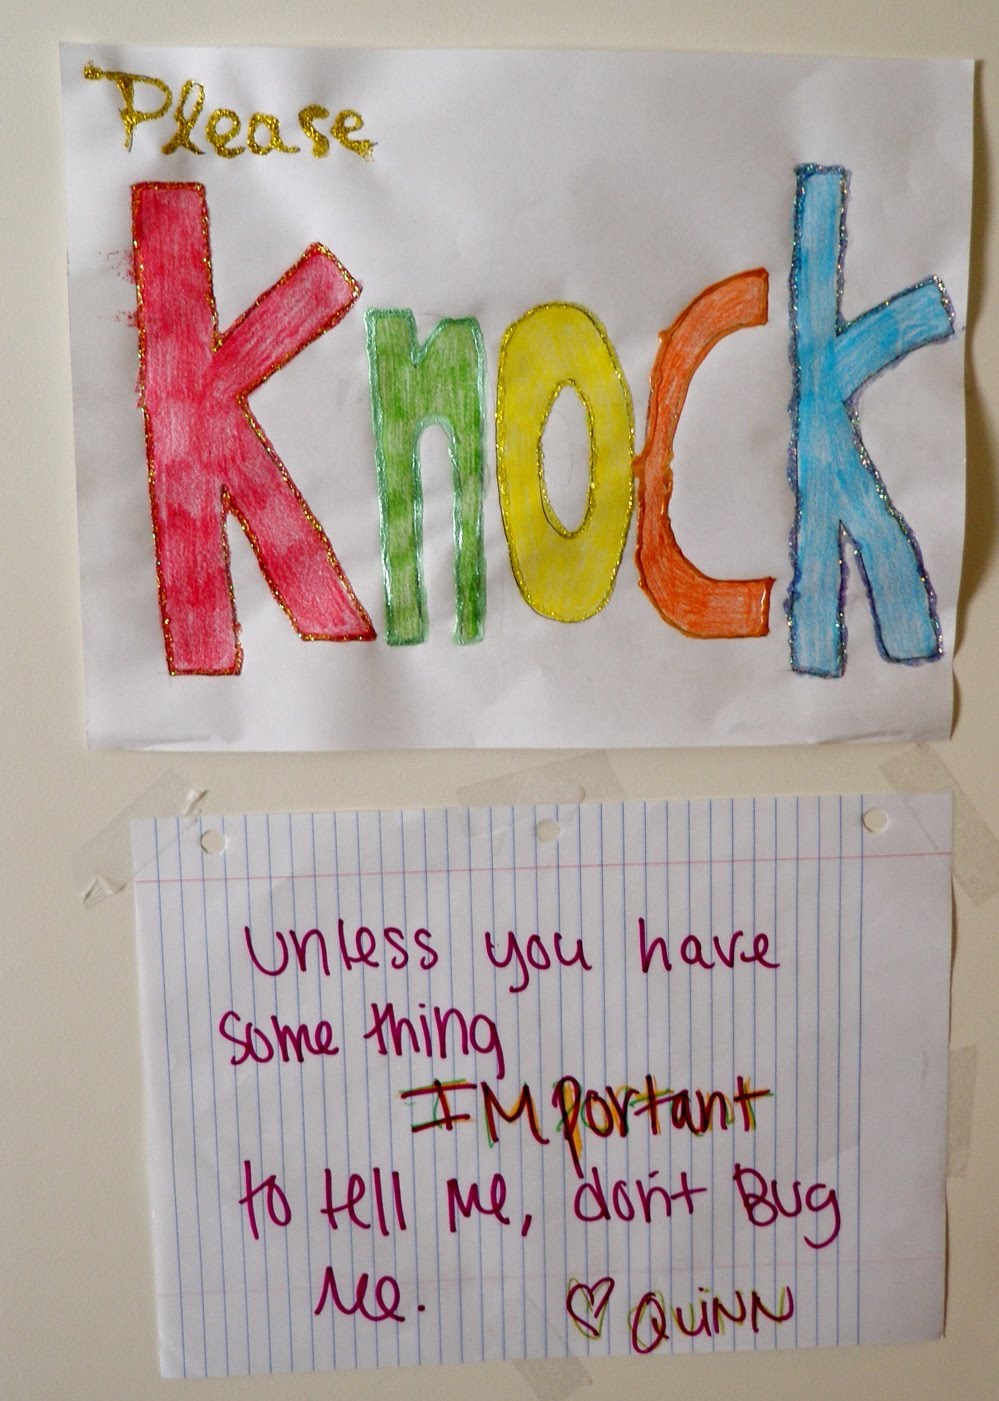 Please
Knock
unless you have
some thing
IMportant
to tell Me, don't Bug
Me. ♡ QUiNN